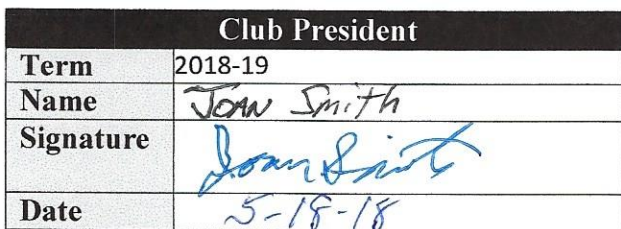 Club President
Term 2018-19
Name JOAN Smith
Signature Joan Smith
Date 5-18-18